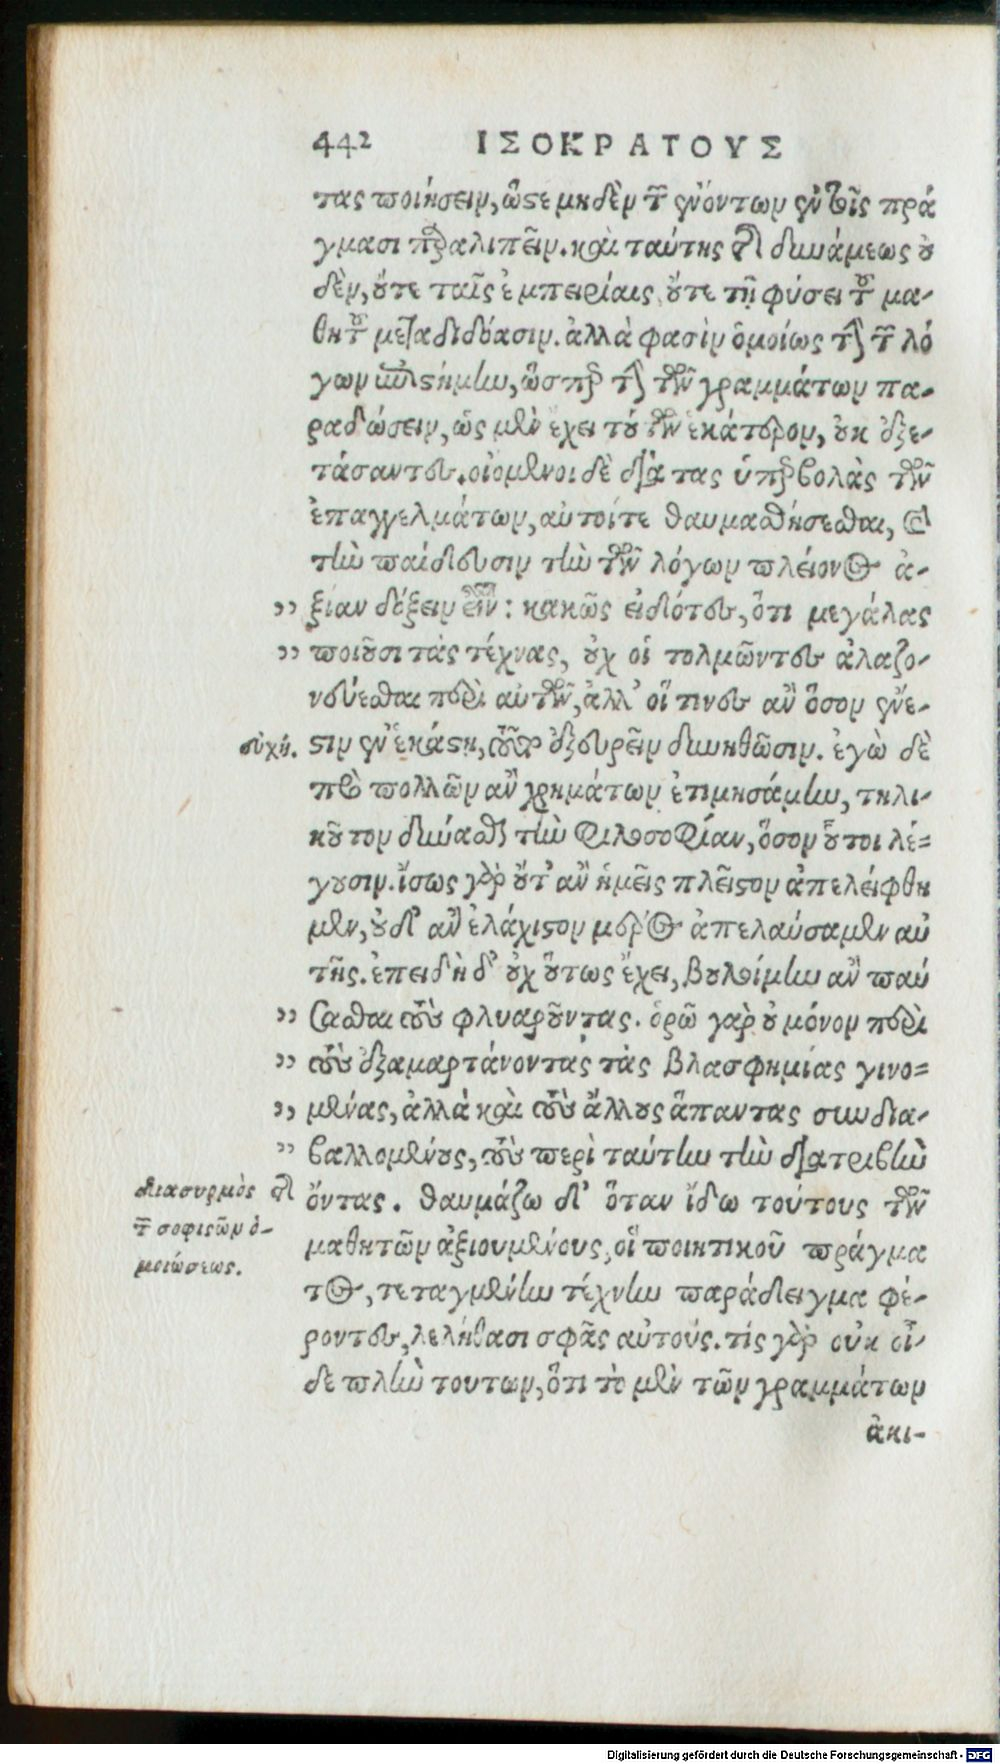 442 ΙΣΟΚΡΑΤΟΥΣ
τας ποιήσειν, ὥστε μηδὲν τῶν ἐνόντων ἐν τοῖς πρά
γμασι παραλιπεῖν. καὶ ταύτης τῆς δυνάμεως οὐ
δὲν, οὔτε ταῖς ἐμπειρίαις οὔτε τῇ φύσει τοῦ μα-
θητοῦ μεταδιδόασιν. ἀλλὰ φασὶν ὁμοίως τὴν τῶν λό
γων ἐπιστήμην, ὥσπερ τὴν τῶν γραμμάτων πα-
ραδώσειν, ὡς μὲν ἔχει τούτων ἑκάτερον, οὐκ ἐξε-
τάσαντες. οἰόμενοι δὲ διὰ τὰς ὑπερβολὰς τῶν
ἐπαγγελμάτων, αὐτοίτε θαυμασθήσεσθαι, καὶ
τὴν παίδευσιν τὴν τῶν λόγων πλείονος ἀ-
" ξίαν δόξειν εἶναι: κακῶς εἰδότες, ὅτι μεγάλας
" ποιοῦσι τὰς τέχνας, οὐχ οἱ τολμῶντες ἀλαζο-
νεύεσθαι περὶ αὐτῶν, ἀλλ' οἵ τινες ἂν ὅσον ἔνε-
εὐχή. στιν ἐν ἑκάστῃ, τοῦτ' ἐξευρεῖν δυνηθῶσιν. ἐγὼ δὲ
πρὸ πολλῶν ἂν χρημάτων ἐτιμησάμην, τηλι-
κοῦτον δύνασθαι τὴν φιλοσοφίαν, ὅσον οὗτοι λέ=
γουσιν. ἴσως γὰρ οὔτ' ἂν ἡμεῖς πλεῖστον ἀπελείφθη
μεν, οὐδ' ἂν ἐλάχιστον μέρος ἀπελαύσαμεν αὐ
τῆς. ἐπειδὴ δ' οὐχ οὕτως ἔχει, βουλοίμην ἂν παύ
" σασθαι τοὺς φλυαροῦντας. ὁρῶ γὰρ οὐ μόνον περὶ
" τοὺς ἐξαμαρτάνοντας τὰς βλασφημίας γινο=
" μένας, ἀλλὰ καὶ τοὺς ἄλλους ἅπαντας συνδια-
" βαλλομένους, τοὺς περὶ ταύτην τὴν διατριβὴν
διασυρμὸς τῆς ὄντας. θαυμάζω δ' ὅταν ἴδω τούτους τῶν
τῶν σοφιστῶν ὁ- μαθητῶν ἀξιουμένους, οἳ ποιητικοῦ πράγμα
μοιώσεως. τος, τεταγμένην τέχνην παράδειγμα φέ-
ροντες, λελήθασι σφᾶς αὐτούς. τίς γὰρ οὐκ οἶ-
δε πλὴν τουτων, ὅτι τὸ μὲν τῶν γραμμάτων
ἀκι-
Digitalisierung gefördert durch die Deutsche Forschungsgemeinschaft - DFG